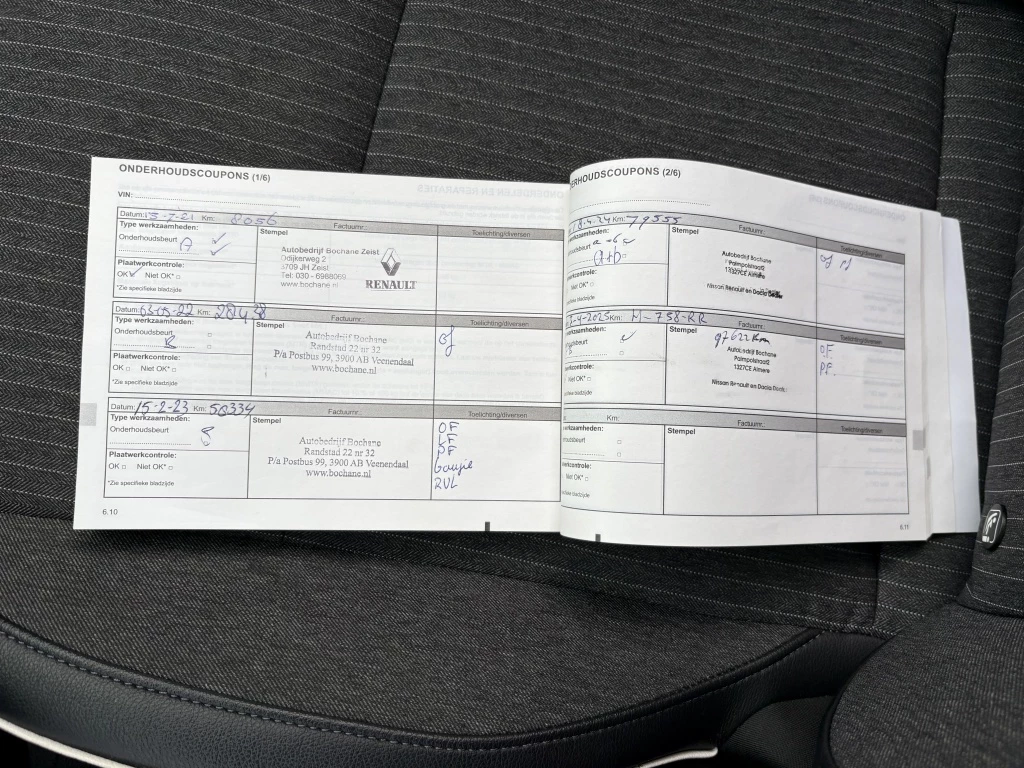 ONDERHOUDSCOUPONS (1/6)
VIN:
Datum: 15-2-21 Km: 8056
Factuurnr.:
Toelichting/diversen
Type werkzaamheden:
Onderhoudsbeurt A
Plaatwerkcontrole:
OK Niet OK*
*Zie specifieke bladzijde
Stempel
Autobedrijf Bochane Zeist
Odijkerweg 2
3709 JH Zeist
Tel: 030 - 6988069
www.bochane.nl
RENAULT
Datum: 03-05-22 Km:
Factuurnr.:
Toelichting/diversen
Type werkzaamheden:
Onderhoudsbeurt
Plaatwerkcontrole:
OK Niet OK*
*Zie specifieke bladzijde
Stempel
Autobedrijf Bochane
Randstad 22 nr 32
P/a Postbus 99, 3900 AB Veenendaal
www.bochane.nl
Of
Datum: 15-2-23 Km: 50334
Factuurnr.:
Toelichting/diversen
Type werkzaamheden:
Onderhoudsbeurt
Plaatwerkcontrole:
OK Niet OK*
*Zie specifieke bladzijde
Stempel
Autobedrijf Bochane
Randstad 22 nr 32
P/a Postbus 99, 3900 AB Veenendaal
www.bochane.nl
OF
LF
PF
bougie
RVL
6.10
DERHOUDSCOUPONS (2/6)
18-4-24 Km: 79555
Factuurnr.:
Toelichting/diversen
werkzaamheden:
werkcontrole:
Niet OK*
bladzijde
Stempel
Autobedrijf Bochane
Palmpolstraat 2
1327CE Almere
Nissan Renault en Dacia Dealer
-4-2025 Km: H-758-RR
Factuurnr.:
Toelichting/diversen
werkzaamheden:
werkcontrole:
Niet OK*
bladzijde
Stempel
97622 km
Autobedrijf Bochane
Palmpolstraat 2
1327CE Almere
Nissan Renault en Dacia Dealer
OF
PF.
Km:
Factuurnr.:
Toelichting/diversen
werkzaamheden:
houdsbeurt
werkcontrole:
Niet OK*
specifieke bladzijde
Stempel
6.11